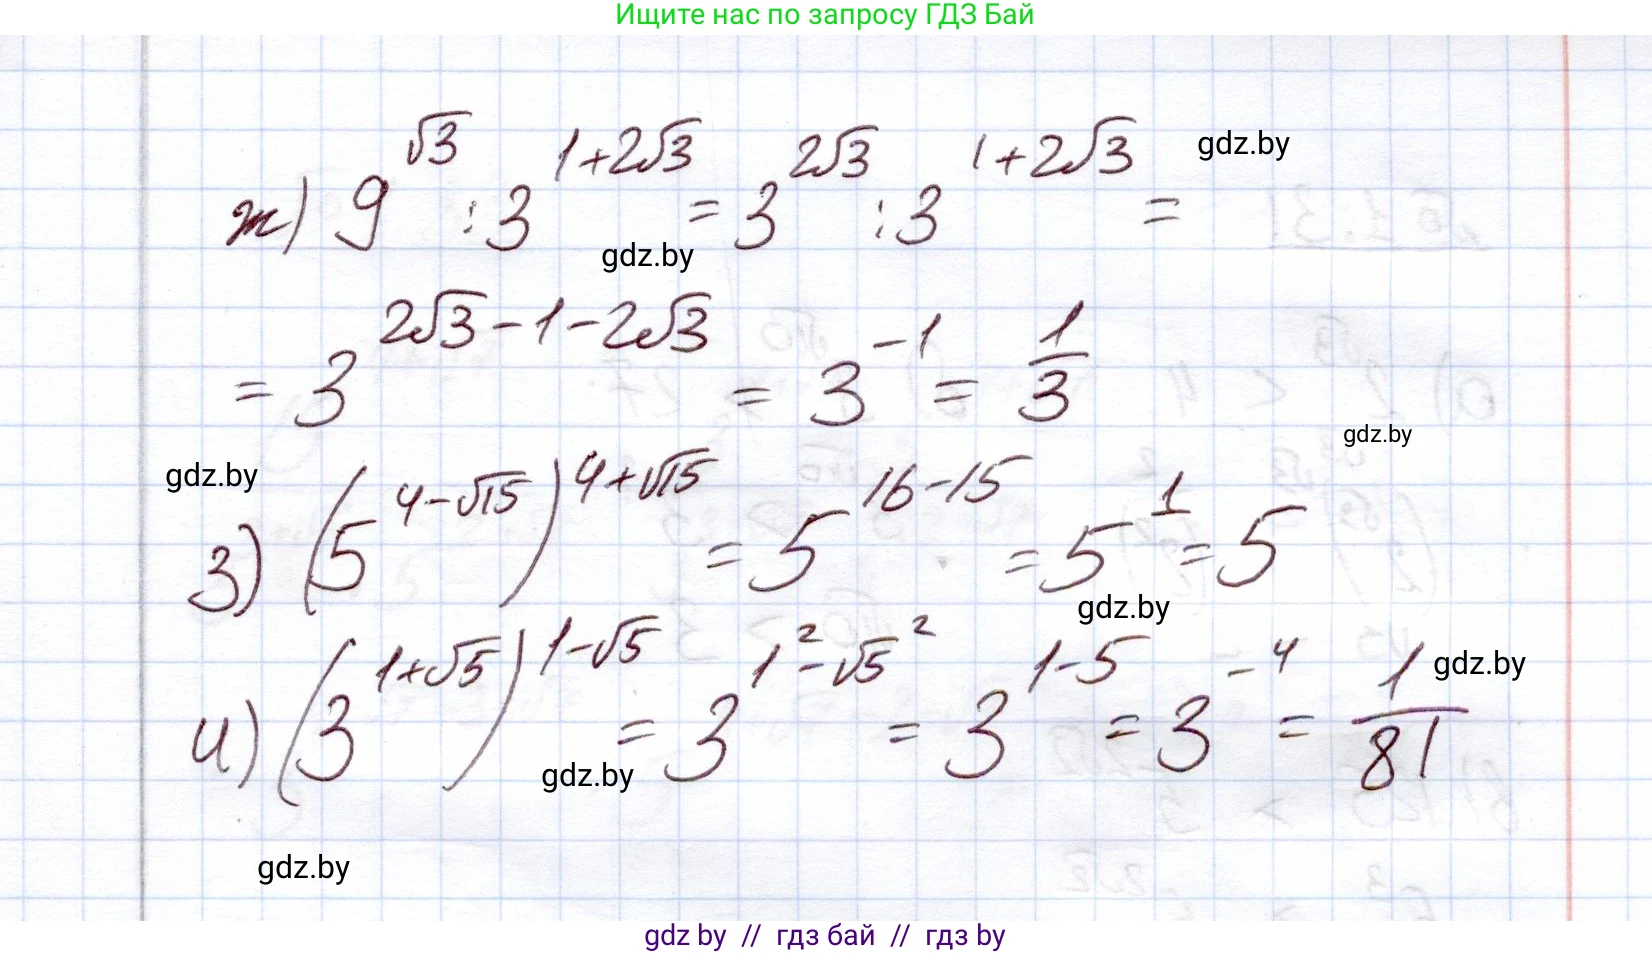 Ищите нас по запросу ГДЗ Бай
ж) 9^√3 : 3^(1+2√3) = 3^(2√3) : 3^(1+2√3) =
gdz.by
gdz.by
= 3^(2√3-1-2√3) = 3^(-1) = 1/3
gdz.by
gdz.by
з) (5^(4-√15))^(4+√15) = 5^(16-15) = 5^1 = 5
gdz.by
и) (3^(1+√5))^(1-√5) = 3^(1²-√5²) = 3^(1-5) = 3^(-4) = 1/81
gdz.by
gdz.by
gdz.by
gdz by // гдз бай // гдз by